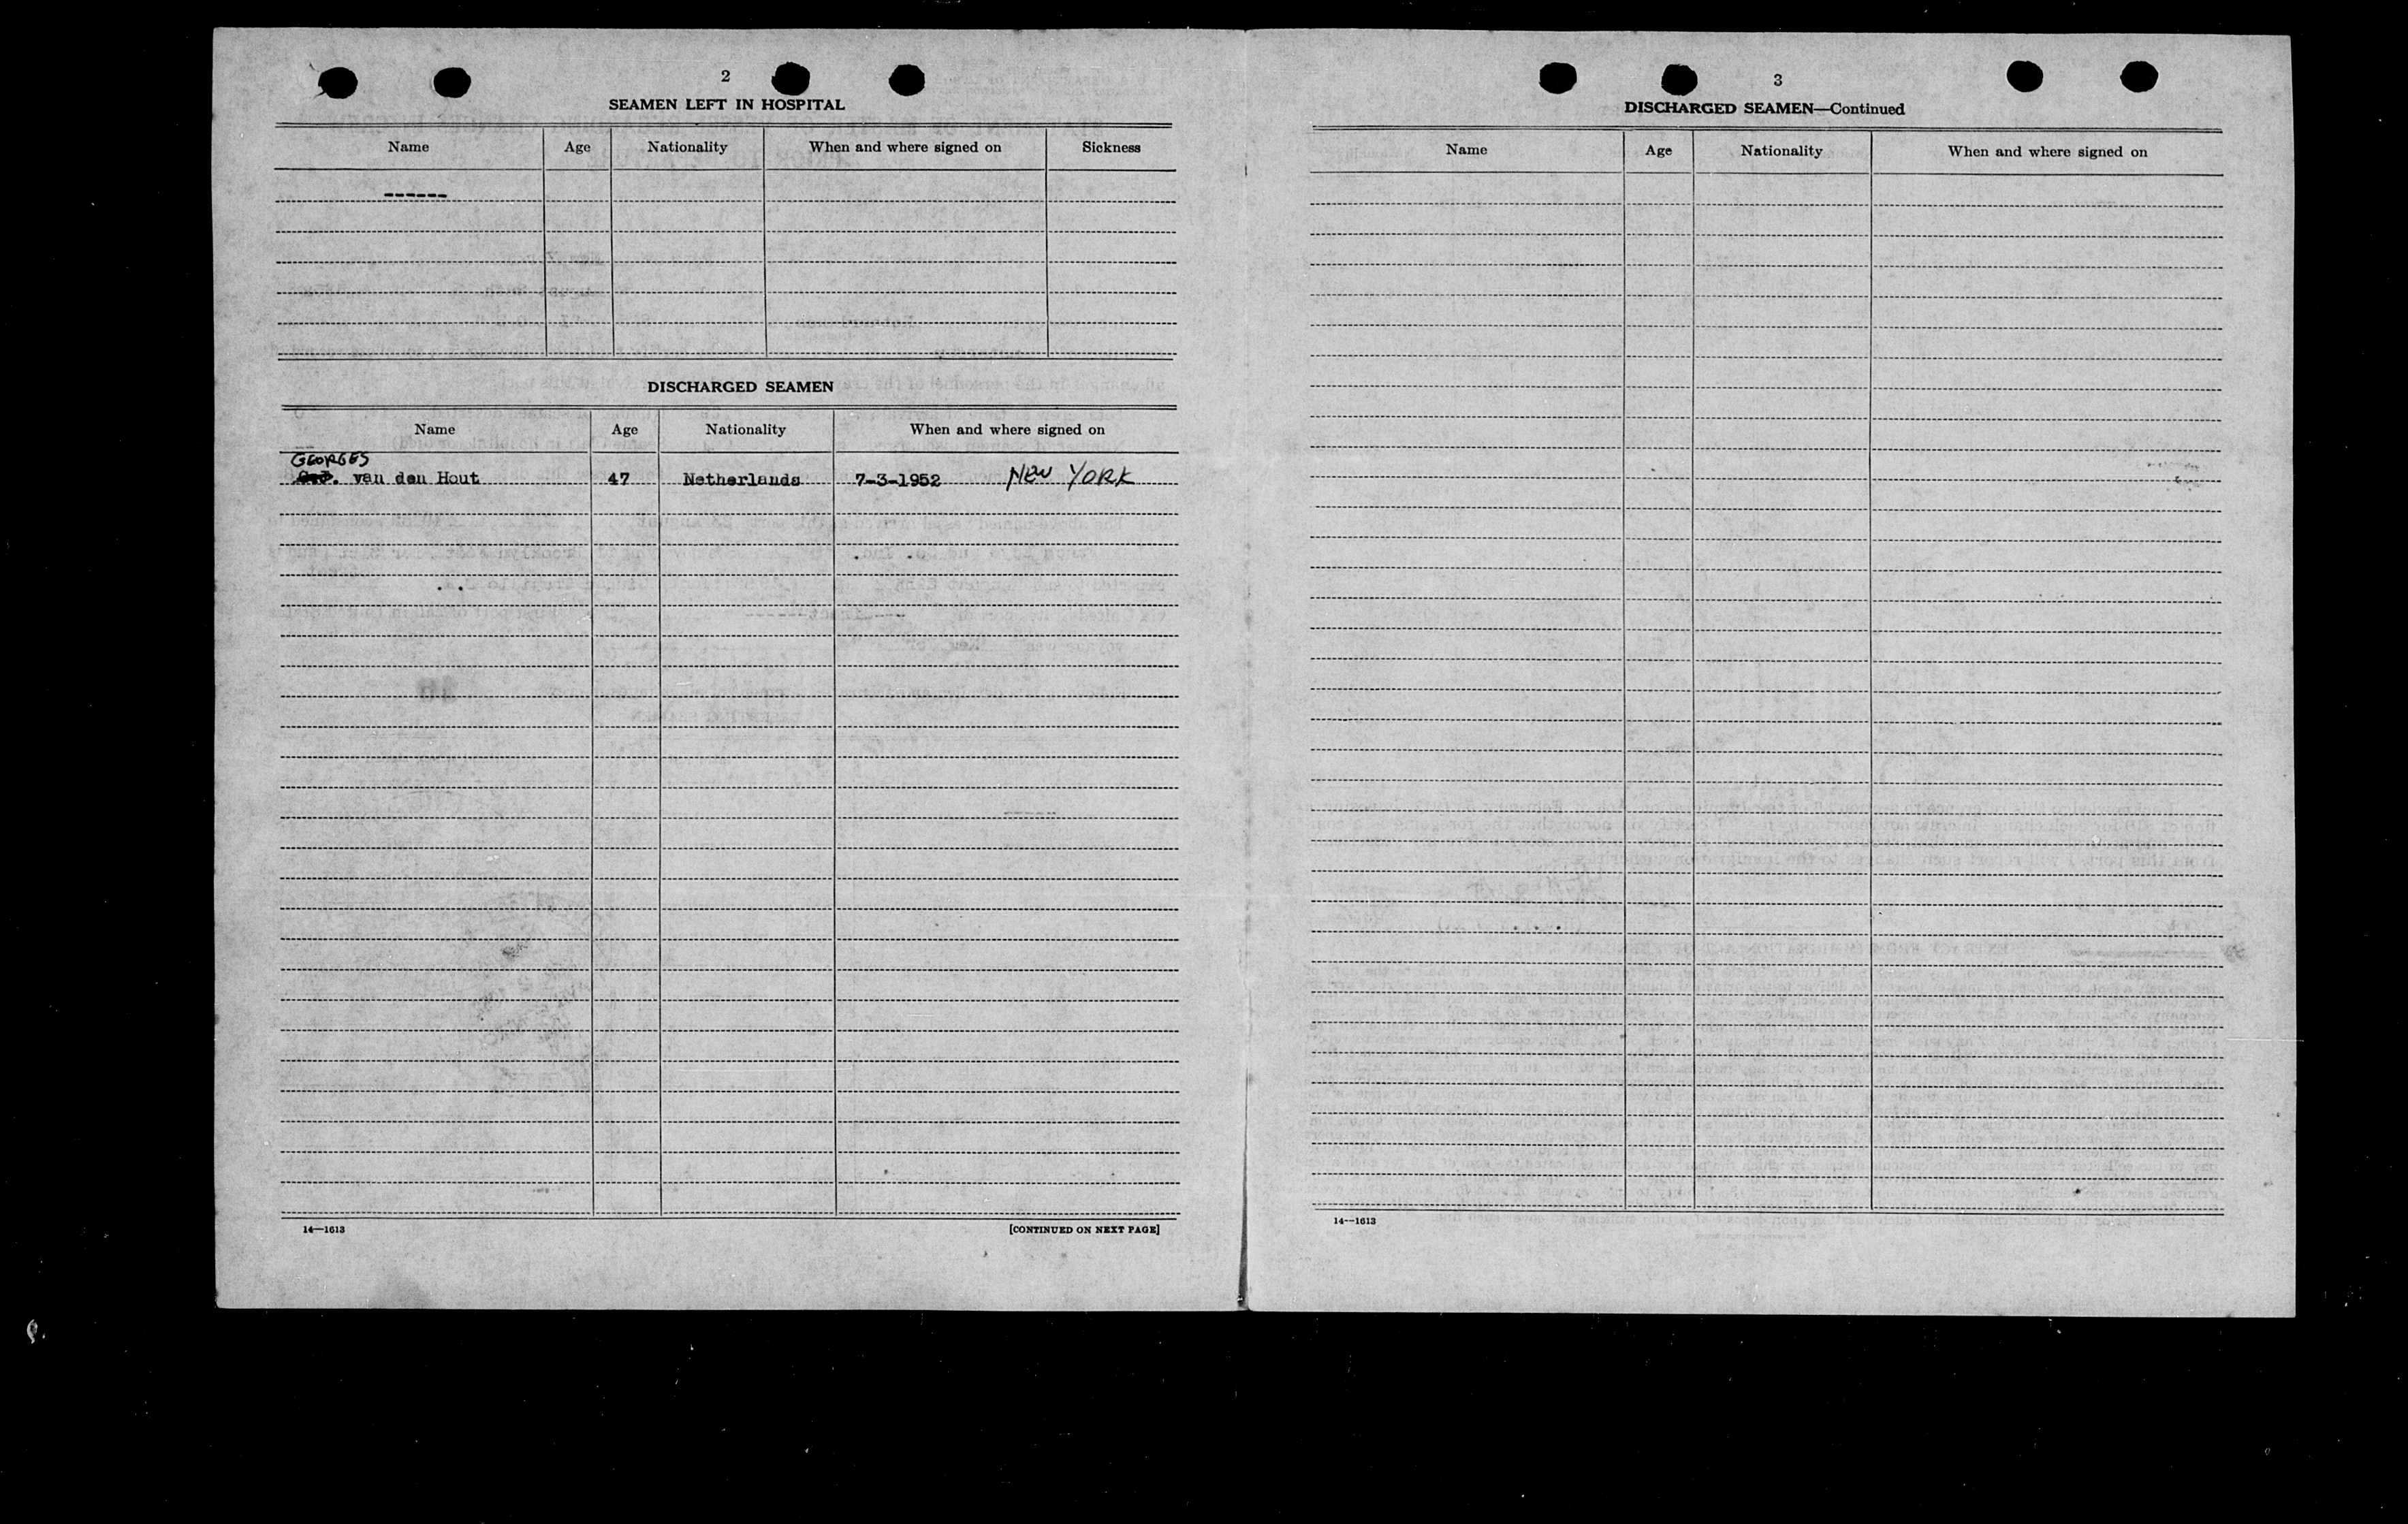 2
SEAMEN LEFT IN HOSPITAL
Name Age Nationality When and where signed on Sickness
------
DISCHARGED SEAMEN
Name Age Nationality When and where signed on
GEORGES
van den Hout 47 Netherlands 7-3-1952 NEW YORK
14—1613 [CONTINUED ON NEXT PAGE]
3
DISCHARGED SEAMEN—Continued
Name Age Nationality When and where signed on
14—1613